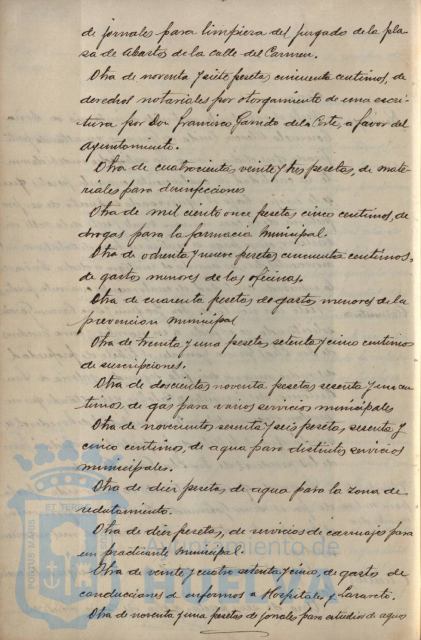 de jornales para limpiera del jurgado de la pla-
sa de Abastos de la calle del Carmen.
Otra de noventa y siete pesetas cincuenta centimos, de
derechos notariales por otorgamiento de una escri-
tura por Don Francisco Garrido de la Corte, a favor del
Ayuntamiento.
Otra de cuatrocientas veinte y tres pesetas, de mate-
riales para desinfecciones
Otra de mil ciento once pesetas cinco centimos, de
drogas para la farmacia municipal.
Otra de ochenta y nueve pesetas cincuenta centimos,
de gastos menores de las oficinas.
Otra de cuarenta pesetas de gastos menores de la
prevencion municipal
Otra de treinta y una pesetas setenta y cinco centimos
de suscripciones.
Otra de doscientas noventa pesetas sesenta y un cen-
timos de gás para varios servicios municipales
Otra de novecientas sesenta y seis pesetas, sesenta y
cinco centimos, de agua para distintos servicios
municipales.
Otra de diez pesetas, de agua para la zona de
reclutamiento.
Otra de diez pesetas, de servicios de carruajes para
un practicante municipal.
Otra de veinte y cuatro setenta y cinco, de gastos de
conducciones de enfermos a Hospitales y Lazareto.
Otra de noventa y una pesetas de jornales para estudios de aguas
PORTUS MARIS
Ayuntamiento de
HUELVA